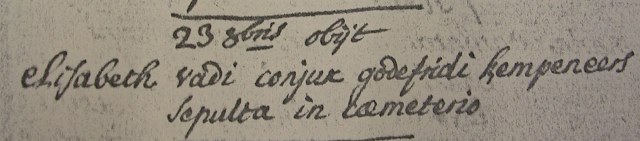 23 8bris obijt
elisabeth vadi conjux godefridi kempeneers
sepulta in cœmeterio